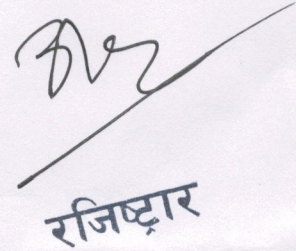 रजिष्ट्रार